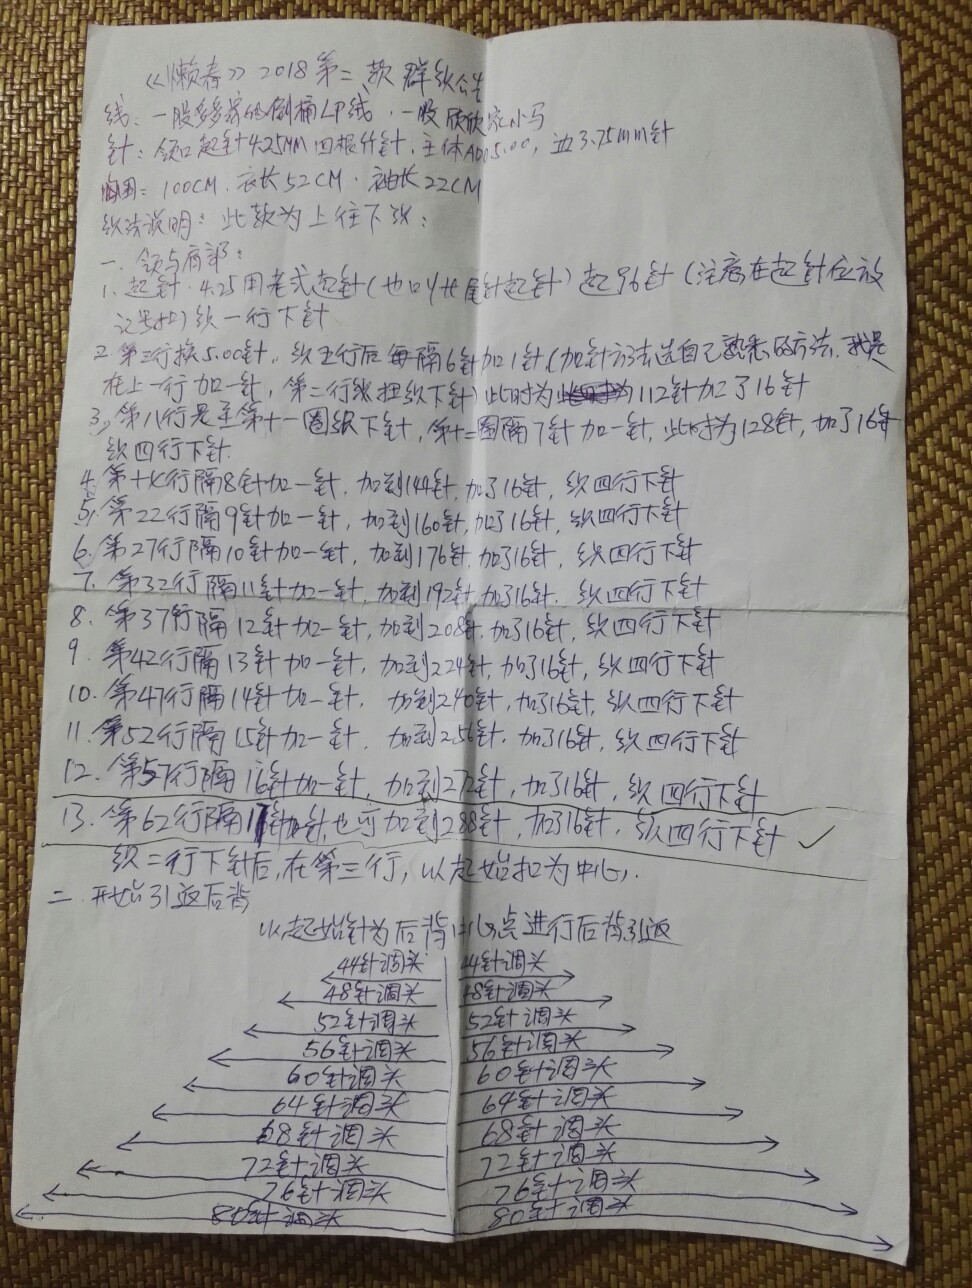 《懒春》2018第二款群织公告
线：一股多多家的倒桶LP线，一股欣欣家小马
针：领口起针4.25MM四根竹针，主体A005.00，边3.75mm针
胸围：100CM．衣长52CM．袖长22CM
织法说明：此款为上往下织：
一、领与肩部：
1、起针．4.25用老式起针（也可以长尾针起针）起96针（注意在起针位放
记号扣）织一行下针
2．第三行换5.00针，织五行后每隔6针加1针（加针方法选自己熟悉的方法，我是
在上一行加一针，第二行就扭织下针）此时为112针加了16针
3，第八行是至第十一圈织下针，第十二圈隔7针加一针，此时为128针，加了16针
织四行下针．
4．第十七行隔8针加一针，加到144针，加了16针，织四行下针
5，第22行隔9针加一针，加到160针，加了16针，织四行下针
6．第27行隔10针加一针，加到176针，加了16针，织四行下针
7．第32行隔11针加一针，加到192针，加了16针．织四行下针
8．第37行隔12针加一针，加到208针，加了16针，织四行下针
9．第42行隔13针加一针，加到224针，加了16针，织四行下针
10．第47行隔14针加一针，加到240针，加了16针，织四行下针
11．第52行隔15针加一针，加到256针，加了16针，织四行下针
12．第57行隔16针加一针，加到272针，加了16针，织四行下针
13．第62行隔17针加针，也可加到288针，加了16针，织四行下针 ✓
织二行下针后，在第三行，以起始扣为中心．
二．开始引返后背
以起始针为后背中心点进行后背引返
44针调头 44针调头
48针调头 48针调头
52针调头 52针调头
56针调头 56针调头
60针调头 60针调头
64针调头 64针调头
68针调头 68针调头
72针调头 72针调头
76针调头 76针调头
80针调头 80针调头